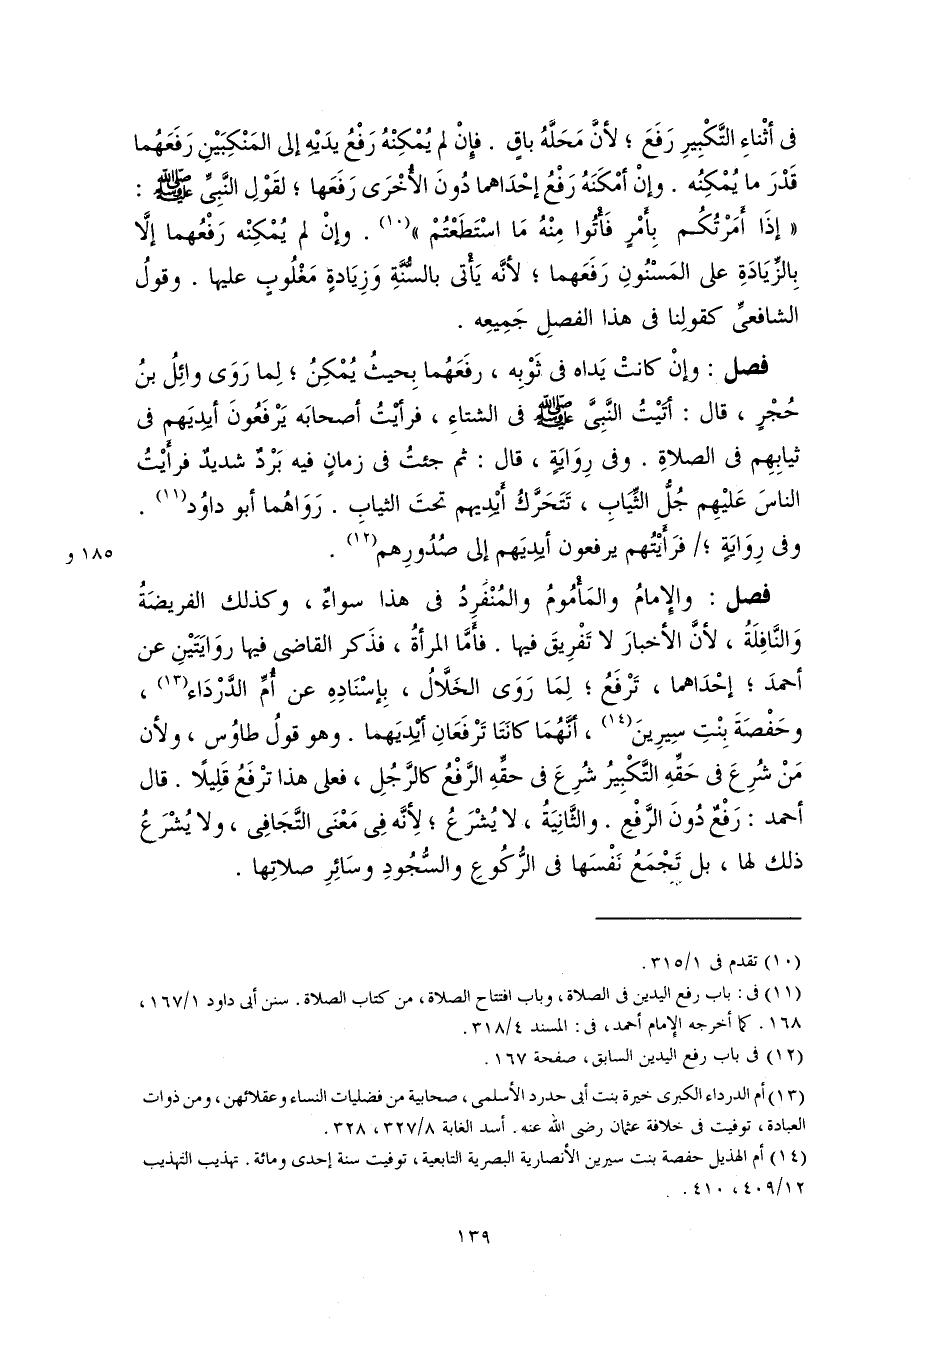 فى أثْناءِ التَّكْبِيرِ رَفَعَ ؛ لأنَّ مَحَلَّهُ باقٍ . فإنْ لم يُمْكِنْهُ رَفْعُ يدَيْهِ إلى المَنْكِبَيْنِ رَفَعَهُما
قَدْرَ ما يُمْكِنُه . وإنْ أمْكَنَهُ رَفْعُ إحْدَاهما دُونَ الأُخْرَى رَفَعَها ؛ لقَوْلِ النَّبِىِّ ﷺ :
« إذَا أَمَرْتُكُم بِأَمْرٍ فَأْتُوا مِنْهُ مَا اسْتَطَعْتُمْ »(١٠) . وإنْ لم يُمْكِنْه رَفْعُهما إلَّا
بالزِّيَادَةِ على المَسْنُونِ رَفَعَهما ؛ لأنَّه يَأْتِى بالسُّنَّةِ وَزِيَادةٍ مَغْلُوبٍ عليها . وقولُ
الشافعىِّ كقولِنا فى هذا الفصلِ جَمِيعِه .
فصل : وإنْ كانتْ يَداه فى ثَوْبِه ، رفَعَهُما بِحيثُ يُمْكِنُ ؛ لِما رَوَى وائِلُ بنُ
حُجْرٍ ، قال : أتَيْتُ النَّبِىَّ ﷺ فى الشتاءِ ، فرأيْتُ أصحابَه يَرْفَعُونَ أيدِيَهم فى
ثيابِهم فى الصلاةِ . وفى رِوَايَةٍ ، قال : ثم جئتُ فى زمانٍ فيه بَرْدٌ شديدٌ فرأَيْتُ
الناسَ عَلَيْهِم جُلُّ الثِّيَابِ ، تَتَحَرَّكُ أَيْدِيهم تحتَ الثيابِ . رَوَاهُما أبو داوُد(١١) .
وفى رِوَايَةٍ ؛/ فرَأيْتُهم يرفعون أيدِيَهم إلى صُدُورِهم(١٢) .
١٨٥ و
فصل : والإمامُ والمَأْمومُ والمُنْفَرِدُ فى هذا سواءٌ ، وكذلك الفريضَةُ
وَالنَّافِلَةُ ، لأنَّ الأخبارَ لا تَفْرِيقَ فيها . فأمَّا المرأةُ ، فذَكر القاضى فيها رِوَايَتَيْنِ عن
أحمدَ ؛ إحْدَاهما ، تَرْفَعُ ؛ لِمَا رَوَى الخَلَّالُ ، بإسْنَادِهِ عن أُمِّ الدَّرْدَاء(١٣) ،
وحَفْصَةَ بِنْتِ سِيرِينَ(١٤) ، أنَّهُمَا كانَتَا تَرْفَعَانِ أيْدِيَهما . وهو قولُ طاوُس ، ولأن
مَنْ شُرِعَ فى حَقِّهِ التَّكْبِيرُ شُرِعَ فى حقِّهِ الرَّفْعُ كالرَّجُلِ ، فعلى هذا تَرْفَعُ قَلِيلًا . قال
أحمد : رَفْعٌ دُونَ الرَّفْعِ . والثَّانِيَةُ ، لا يُشْرَعُ ؛ لِأنَّه فِى مَعْنَى التَّجَافِى ، ولا يُشْرَعُ
ذلك لها ، بل تَجْمَعُ نَفْسَها فى الرُّكُوعِ والسُّجُودِ وسَائِرِ صلاتِها .
(١٠) تقدم فى ٣١٥/١ .
(١١) فى : باب رفع اليدين فى الصلاة ، وباب افتتاح الصلاة ، من كتاب الصلاة . سنن أبى داود ١٦٧/١ ،
١٦٨ . كما أخرجه الإمام أحمد ، فى : المسند ٣١٨/٤ .
(١٢) فى باب رفع اليدين السابق ، صفحة ١٦٧ .
(١٣) أم الدرداء الكبرى خيرة بنت أبى حدرد الأسلمى ، صحابية من فضليات النساء وعقلائهن ، ومن ذوات
العبادة ، توفيت فى خلافة عثمان رضى الله عنه . أسد الغابة ٣٢٧/٨ ، ٣٢٨ .
(١٤) أم الهذيل حفصة بنت سيرين الأنصارية البصرية التابعية ، توفيت سنة إحدى ومائة . تهذيب التهذيب
٤٠٩/١٢ ، ٤١٠ .
١٣٩